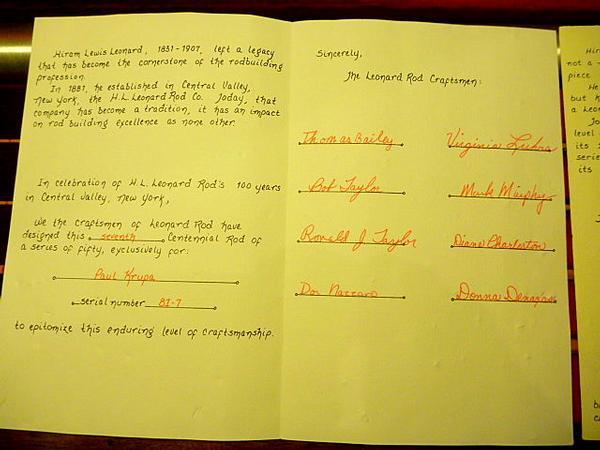 Hiram Lewis Leonard, 1831-1907, left a legacy
that has become the cornerstone of the rodbuilding
profession.
In 1881, he established in Central Valley,
New York, the H.L. Leonard Rod Co. Today, that
company has become a tradition, it has an impact
on rod building excellence as none other.
In celebration of H.L. Leonard Rod's 100 years
in Central Valley, New York,
We the craftsmen of Leonard Rod have
designed this seventh Centennial Rod of
a series of fifty, exclusively for:
Paul Krupa
serial number 81-7
to epitomize this enduring level of craftsmanship.
Sincerely,
The Leonard Rod Craftsmen:
Thomas Bailey
Virginia
Bob Taylor
Mark Murphy
Ronald J. Taylor
Diane Charleston
Don Nazzaro
Donna
Hir
not a
piece
He
but
a Leon
Jo
level
its
serie
its